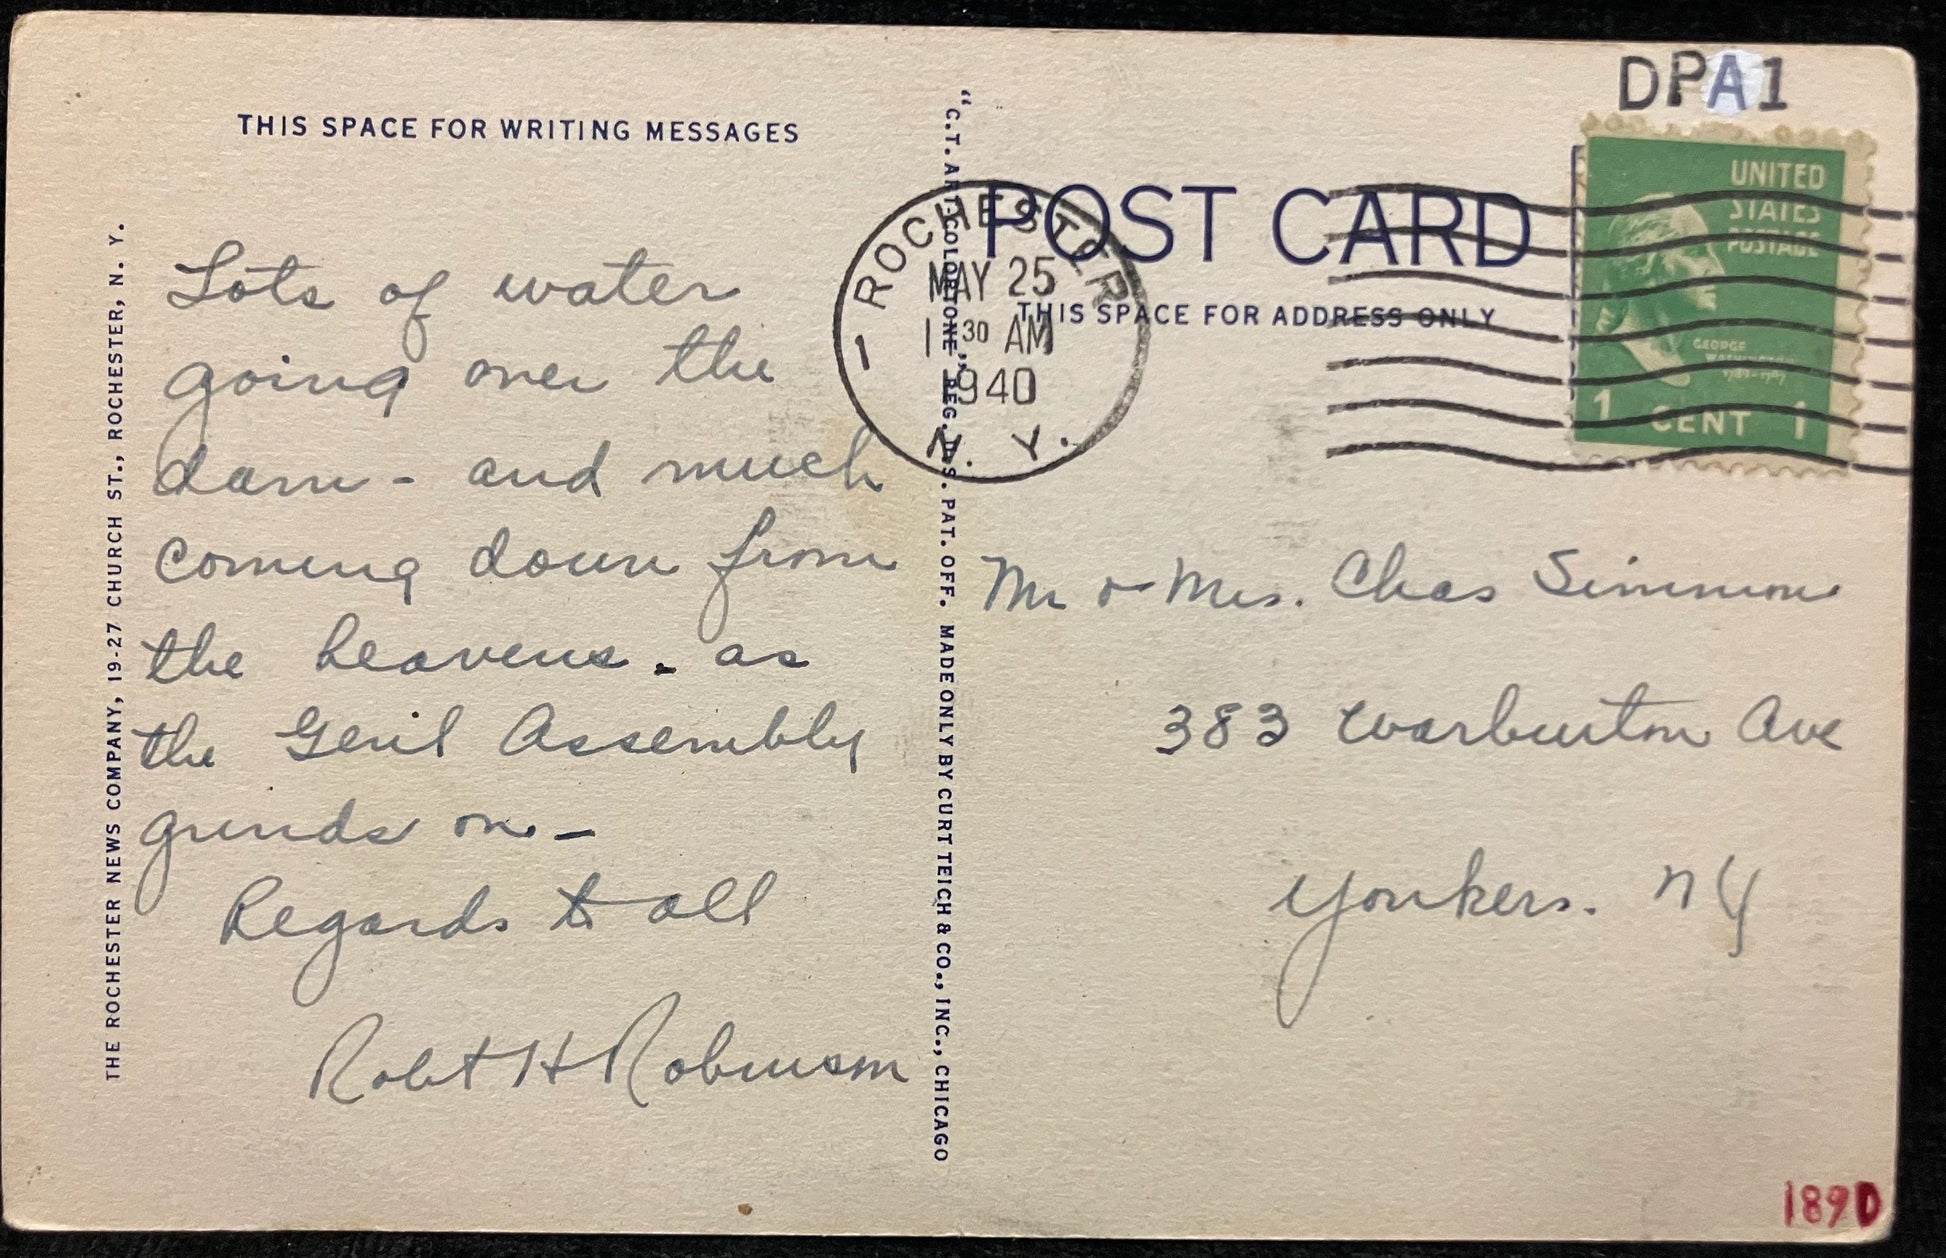 DPA1
THIS SPACE FOR WRITING MESSAGES
POST CARD
THIS SPACE FOR ADDRESS ONLY
UNITED
STATES
POSTAGE
GEORGE
WASHINGTON
1789-1797
1 CENT 1
ROCHESTER
MAY 25
1 30 AM
1940
N. Y.
1
THE ROCHESTER NEWS COMPANY, 19-27 CHURCH ST., ROCHESTER, N. Y.
Lots of water
going over the
dam - and much
coming down from
the heavens. as
the Gen'l Assembly
grinds on -
Regards to all
Robt H Robinson
"C.T. ART-COLORTONE" REG. U.S. PAT. OFF. MADE ONLY BY CURT TEICH & CO., INC., CHICAGO
Mr & Mrs. Chas Simmons
383 Warburton Ave
Yonkers. NY
189D